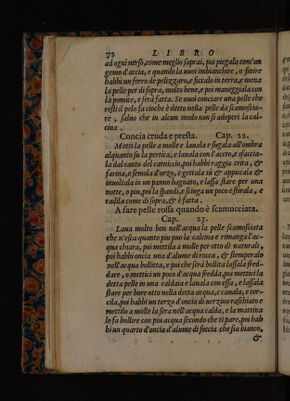 72 LIBRO
ad ogni verso, come meglio saprai, poi piegala com'un
gemo d'accia, e quando la vuoi imbianchire, o finire
habbi un ferro de pelizzaro, e ficcalo in terra, e mena
la pelle per di sopra, molto bene, e poi maneggiala con
la pomice, e serà fatta. Se vuoi conciare una pelle che
resti il pelo fa cioche è detto nella pelle da scamoscia-
re, saluo che in alcun modo non si adoperi la cal-
cina.
Concia cruda e presta. Cap. 22.
Metti la pelle a molle e lauala e sugala all'ombra
alquanto su la pertica, e lauala con l'aceto, e sfaccia-
la dal canto del carniccio, poi habbi raggia trita, &
farina, o semola d'orzo, e gettala sù & appiccala &
inuoltala in un panno bagnato, e lassa stare per una
notte, o piu, poi la spanda, e sciuga un poco e sfirala, e
radila come di sopra, & è fatta.
A fare pelle rossa quando è scamucciata.
Cap. 23.
Laua molto ben nell'acqua la pelle scamosciata
che n'esca quanto piu puo la calcina e rimanga l'ac-
qua chiara, poi mettila a molle per otto dì naturali,
poi habbi oncia una d'alume di rocca, & stemperala
nell'acqua bollita, e poi che serà bollita lassala fred-
dare, o mettici un poco d'acqua fredda, poi mettici la
detta pelle in una caldaia e lauala con essa, e lassala
stare per hore otto nella detta acqua, e cauala, e tor-
cila, poi habbi un terzo d'oncia di uerzino raschiato e
mettilo a molle la sera nell'acqua calda, e la mattina
lo fa bollire con piu acqua secondo che ti pare, poi hab
bi un quarto d'oncia d'alume di feccia che sia bianco,
&